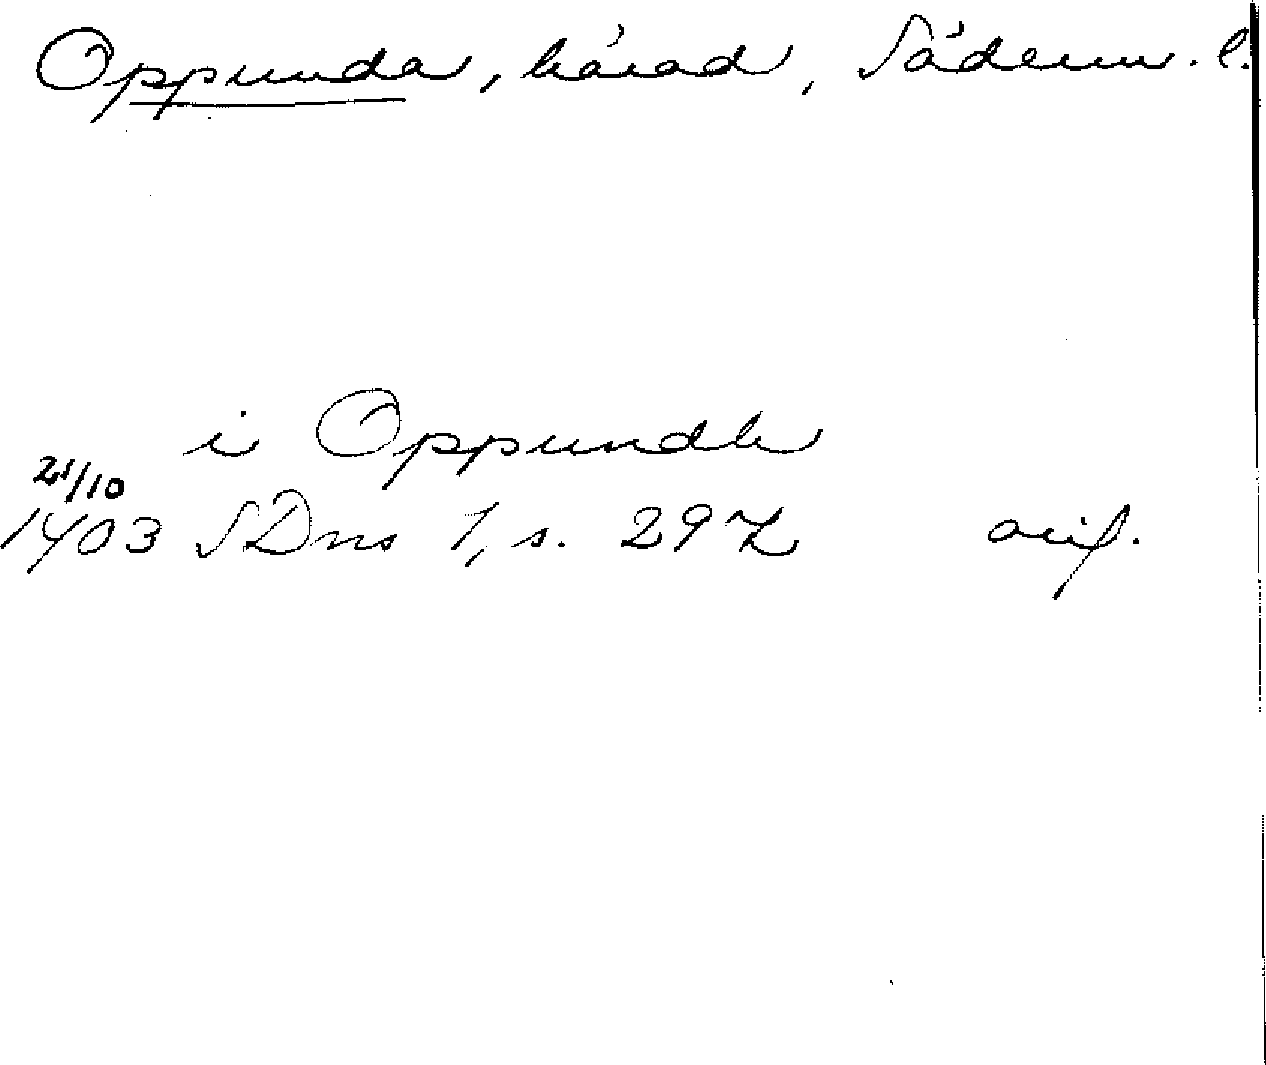 Oppunda, härad, Söderm. l.
i Oppundh
21/10
1403 SDns 1, s. 297 avskr.